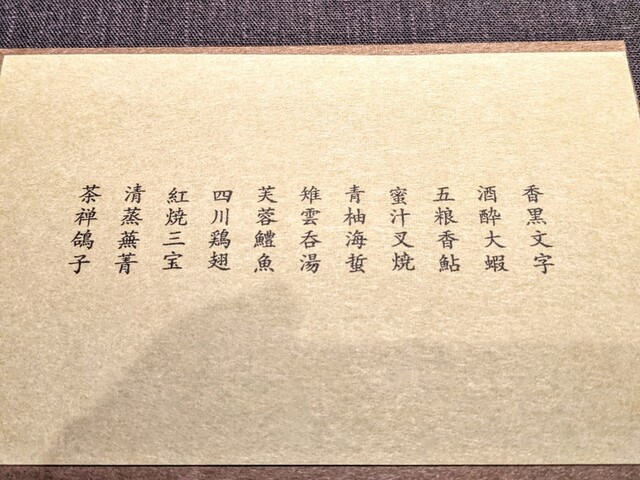 香黒文字
酒酔大蝦
五粮香鮎
蜜汁叉焼
青柚海蜇
雉雲呑湯
芙蓉鱧魚
四川鶏翅
紅焼三宝
清蒸蕪菁
茶禅鴿子